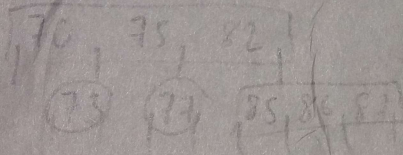 70, 75, 82
73 77 85, 86, 87